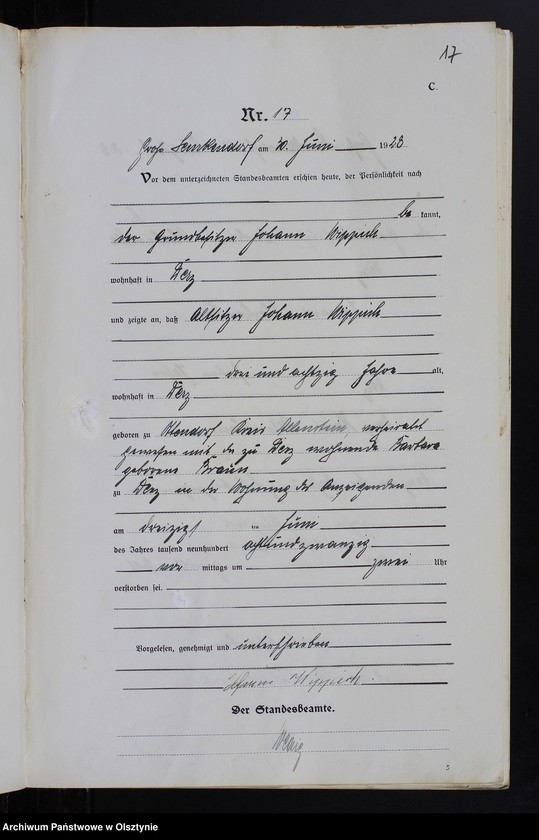 17
C.
Nr. 17
Groß Lemkendorf am 30. Juni 1928
Vor dem unterzeichneten Standesbeamten erschien heute, der Persönlichkeit nach
be kannt,
der Grundbesitzer Johann Wippich
wohnhaft in Derz
und zeigte an, daß Altsitzer Johann Wippich
drei und achtzig Jahre alt,
wohnhaft in Derz
geboren zu Ottendorf Kreis Allenstein verheiratet
gewesen mit der zu Derz wohnende Barbara
geborene Braun
zu Derz in der Wohnung des Anzeigenden
am dreizigst ten Juni
des Jahres tausend neunhundert achtundzwanzig
vor mittags um zwei Uhr
verstorben sei.
Vorgelesen, genehmigt und unterschrieben
Johann Wippich.
Der Standesbeamte.
5
Archiwum Państwowe w Olsztynie